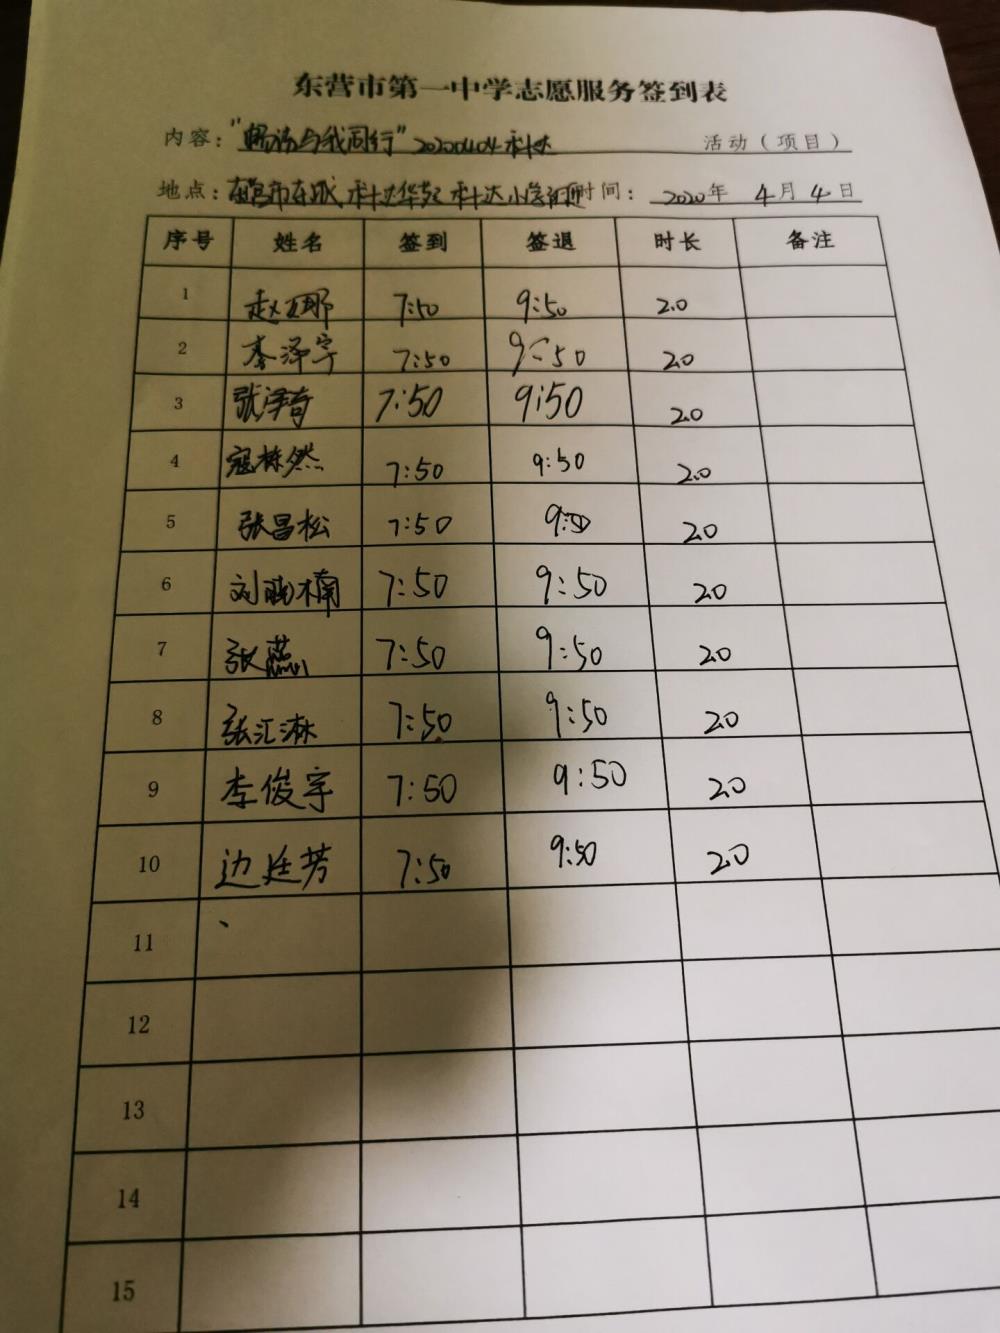 东营市第一中学志愿服务签到表
内容："畅游与我同行"20200404科达 活动（项目）
地点：东营市东城科达华苑科达小学 时间：2020年4月4日
序号 姓名 签到 签退 时长 备注
1 赵 7:50 9:50 2.0
2 李泽宇 7:50 9:50 2.0
3 张泽奇 7:50 9:50 2.0
4 寇栋然 7:50 9:50 2.0
5 张昌松 7:50 9:50 2.0
6 刘晓楠 7:50 9:50 2.0
7 张燕 7:50 9:50 2.0
8 张汇淋 7:50 9:50 2.0
9 李俊宇 7:50 9:50 2.0
10 边廷芳 7:50 9:50 2.0
11
12
13
14
15